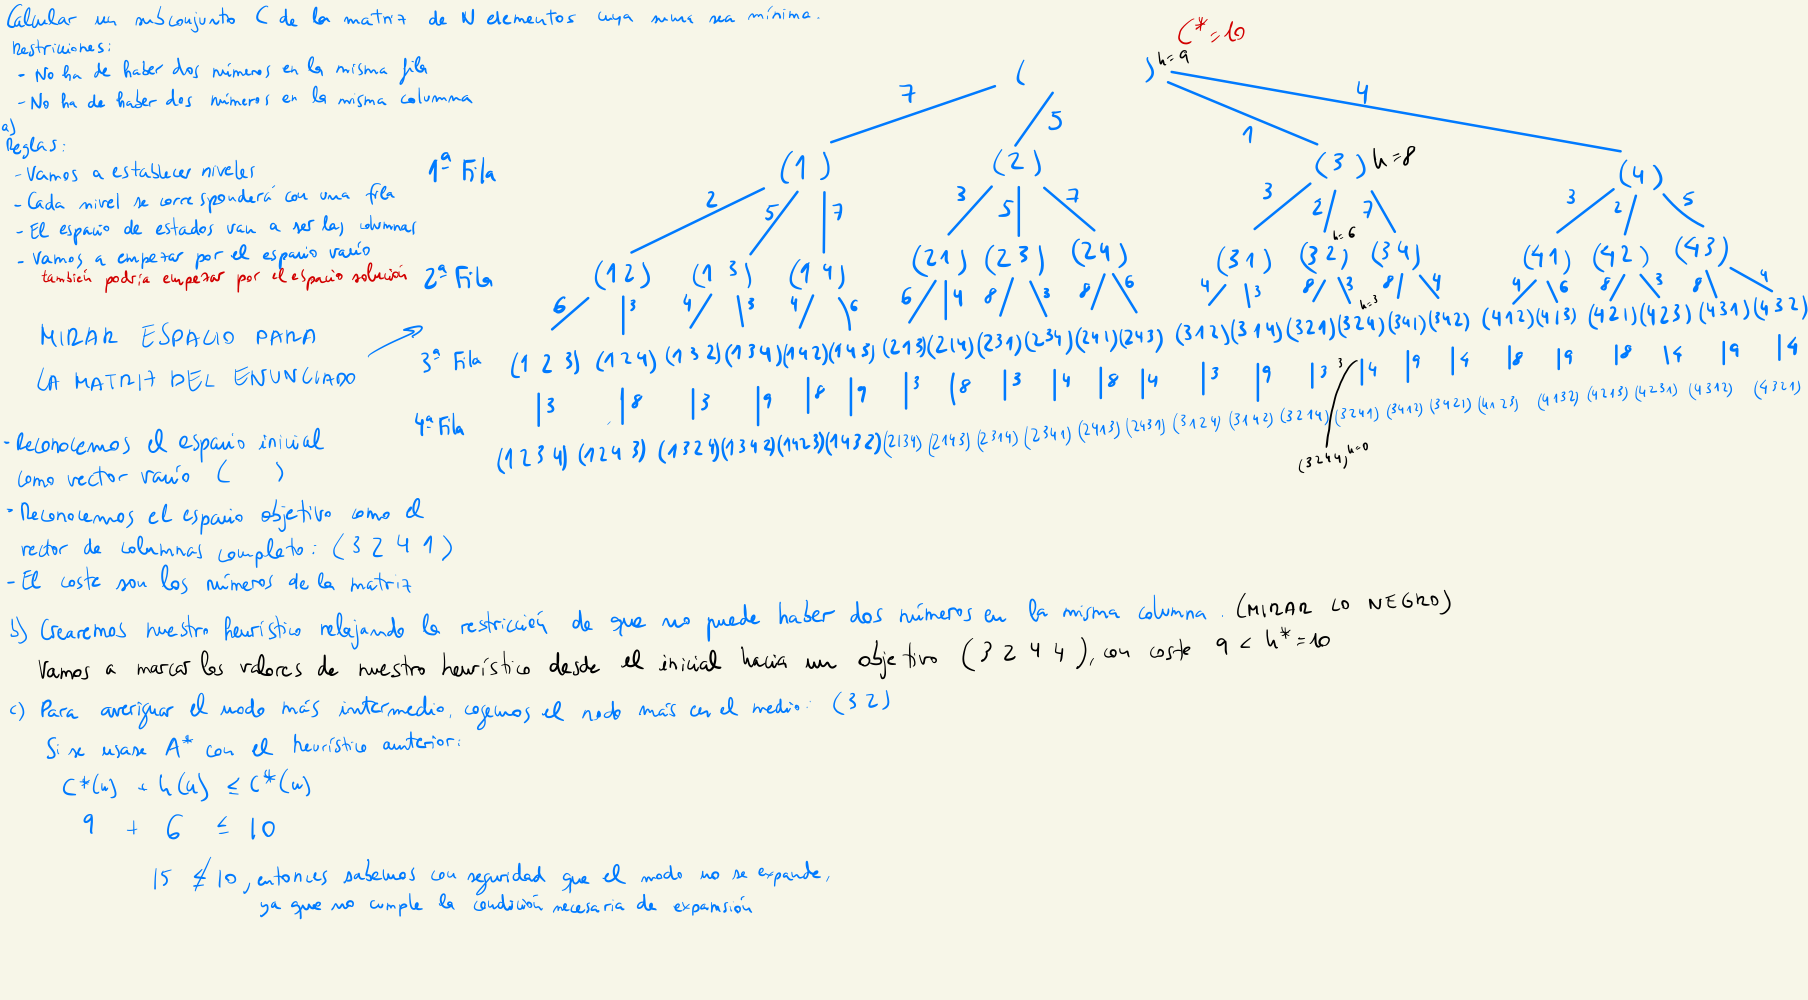 Calcular un subconjunto C de la matriz de N elementos cuya suma sea mínima.
Restricciones:
- No ha de haber dos números en la misma fila
- No ha de haber dos números en la misma columna
a)
Reglas:
- Vamos a establecer niveles
- Cada nivel se corresponderá con una fila
- El espacio de estados van a ser las columnas
- Vamos a empezar por el espacio vacío
también podría empezar por el espacio solución
MIRAR ESPACIO PARA
LA MATRIZ DEL ENUNCIADO
- Reconocemos el espacio inicial
como vector vacío ( )
- Reconocemos el espacio objetivo como el
vector de columnas completo: (3 2 4 1)
- El coste son los números de la matriz
C*=10
( ) h=9
7 5 1 4
1ª Fila
(1) (2) (3) h=8 (4)
2 5 7 3 5 7 3 2 7 3 2 5
h=6
2ª Fila
(12) (13) (14) (21) (23) (24) (31) (32) (34) (41) (42) (43)
6 3 4 3 4 6 6 4 8 3 8 6 4 3 8 3 8 4 4 6 8 3 8 4
h=3
3ª Fila
(123) (124) (132) (134) (142) (143) (213) (214) (231) (234) (241) (243) (312) (314) (321) (324) (341) (342) (412) (413) (421) (423) (431) (432)
3 8 3 9 8 9 3 8 3 4 8 4 3 9 3 3 4 9 4 8 9 8 4 9 4
4ª Fila
(1234) (1243) (1324) (1342) (1423) (1432) (2134) (2143) (2314) (2341) (2413) (2431) (3124) (3142) (3214) (3241) (3412) (3421) (4123) (4132) (4213) (4231) (4312) (4321)
(3244) h=0
b) Crearemos nuestro heurístico relajando la restricción de que no puede haber dos números en la misma columna. (MIRAR LO NEGRO)
Vamos a marcar los valores de nuestro heurístico desde el inicial hacia un objetivo (3 2 4 4), con coste 9 < h*=10
c) Para averiguar el nodo más intermedio, cogemos el nodo más en el medio: (3 2)
Si se usase A* con el heurístico anterior:
C*(n) + h(n) ≤ C*(n)
9 + 6 ≤ 10
15 ≰ 10, entonces sabemos con seguridad que el nodo no se expande,
ya que no cumple la condición necesaria de expansión